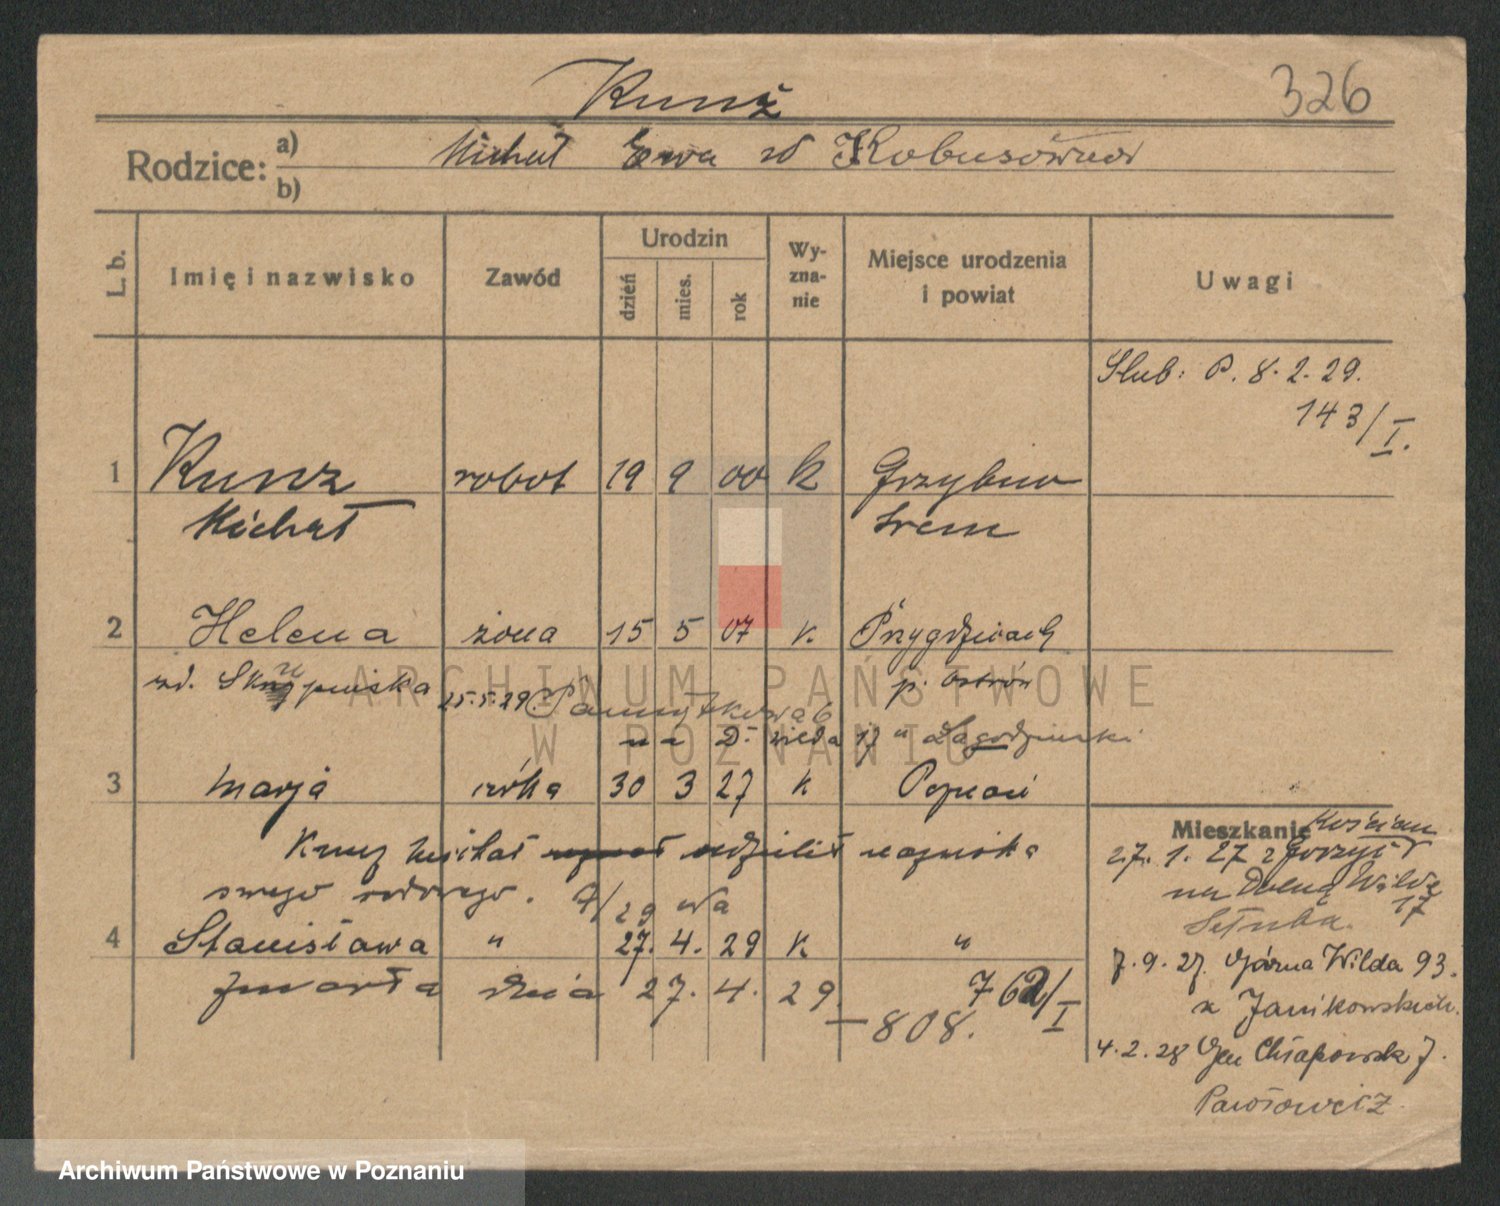 Kunz
326
Rodzice:
a) Michał Ewa zd Kobusówna
b)
L. b.
Imię i nazwisko
Zawód
Urodzin
dzień
mies.
rok
Wy-
zna-
nie
Miejsce urodzenia
i powiat
Uwagi
Ślub: P. 8. 2. 29.
143/I.
1 Kunz robot 19 9 00 k Grzybno
Michał Śrem
2 Helena żona 15 5 07 k Przygodzicach
zd. p. Ostrów
25.5.29
na D. Wilda 17
3 Marja córka 30 3 27 k Poznań
Kunz Michał udzielił nazwiska
swego
4 Stanisława " 27. 4. 29 k "
zmarła dnia 27. 4. 29. 762/I
– 808.
Mieszkanie Kościan
27. 1. 27 z Gorzyc
na Dolną Wildę
17
7. 9. 27. Górna Wilda 93.
z Janikowskich.
4. 2. 28 Gen Chłapowsk 7.
Pawłowicz
ARCHIWUM PAŃSTWOWE
W POZNANIU
Archiwum Państwowe w Poznaniu